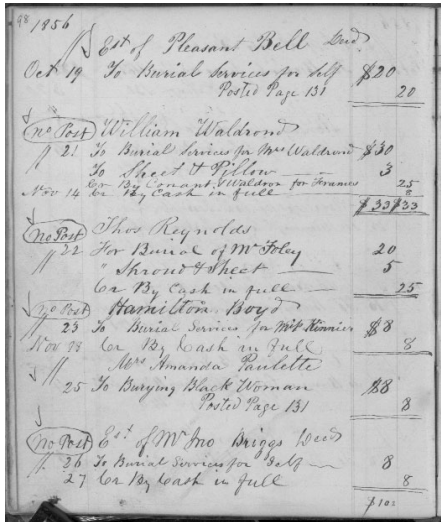 98 1856
Est of Pleasant Bell Decd
Oct 19 To Burial Services for Self $20
Posted Page 131 20
no Post William Waldrond
" 21 To Burial Services for Mrs Waldrond $30
To Sheet & Pillow 3
Cr By Conant & Waldron for Frames 25
Nov 14 Cr By Cash in full 8
$33 $33
no Post Thos Reynolds
" 22 For Burial of Mr Foley 20
" Shroud & Sheet 5
Cr By Cash in full 25
no Post Hamilton Boyd
" 23 To Burial Services for Kinnier $8
Nov 28 Cr By Cash in full 8
Mrs Amanda Paulette
" 25 To Burying Black Woman $8
Posted Page 131 8
no Post Est of Mr Jno Briggs Decd
" 26 To Burial Services for Self 8
27 Cr By Cash in full 8